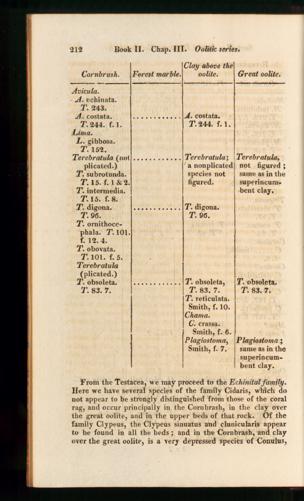 212 Book II. Chap. III. Oolitic series.
Cornbrash. Forest marble. Clay above the oolite. Great oolite.
Avicula.
A. echinata.
T. 243.
A. costata. . . . . . . . . . . . A. costata.
T. 244. f. 1. T. 244. f. 1.
Lima.
L. gibbosa.
T. 152.
Terebratula (not . . . . . . . . . . . Terebratula; Terebratula,
plicated.) a nonplicated not figured;
T. subrotunda. species not same as in the
T. 15. f. 1 & 2. figured. superincum-
T. intermedia. bent clay.
T. 15. f. 8.
T. digona. . . . . . . . . . . . T. digona.
T. 96. T. 96.
T. ornithoce-
phala. T. 101.
f. 12. 4.
T. obovata.
T. 101. f. 5.
Terebratula
(plicated.)
T. obsoleta. . . . . . . . . . . . T. obsoleta, T. obsoleta.
T. 83. 7. T. 83. 7. T. 83. 7.
T. reticulata.
Smith, f. 10.
Chama.
C. crassa.
Smith, f. 6.
Plagiostoma, Plagiostoma;
Smith, f. 7. same as in the
superincum-
bent clay.
From the Testacea, we may proceed to the Echinital family.
Here we have several species of the family Cidaris, which do
not appear to be strongly distinguished from those of the coral
rag, and occur principally in the Cornbrash, in the clay over
the great oolite, and in the upper beds of that rock. Of the
family Clypeus, the Clypeus sinuatus and clunicularis appear
to be found in all the beds; and in the Cornbrash, and clay
over the great oolite, is a very depressed species of Conulus,